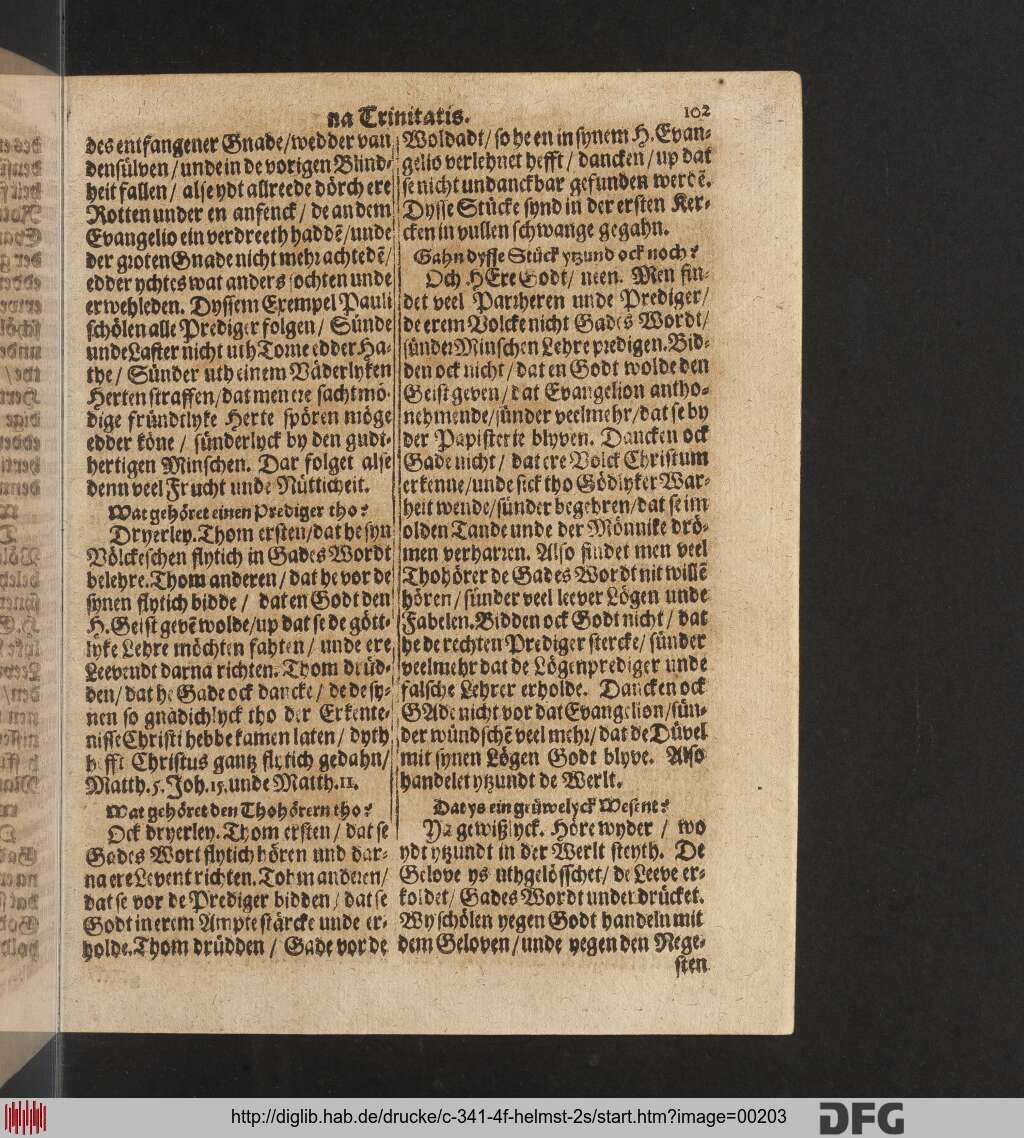 na Trinitatis.
102
des entfangener Gnade/wedder van
densülven/unde in de vorigen Blind-
heit fallen/alse ydt allreede dörch ere
Rotten under en anfenck/de an dem
Evangelio ein verdreeth haddē/unde
der groten Gnade nicht mehr achtedē/
edder ychtes wat anders sochten unde
erwehleden. Dyssem Exempel Pauli
schölen alle Prediger folgen/ Sünde
unde Laster nicht uth Torne edder Ha-
the/ Sünder uth einem Väderlyken
Herten straffen/dat men ere sachtmö-
dige fründtlyke Herte spören möge
edder köne/ sünderlyck by den gudt-
hertigen Minschen. Dar folget alse
denn veel Frucht unde Nütticheit.
Wat gehöret einen Prediger tho?
Dryerley. Thom ersten/dat he syn
Völckeschen flytich in Gades Wordt
belehre. Thom anderen/dat he vor de
synen flytich bidde/ dat en Godt den
H. Geist gevē wolde/up dat se de gött-
lyke Lehre möchten fahten/unde ere
Leevendt darna richten. Thom drüd-
den/dat he Gade ock dancke/de de sy-
nen so gnädichlyck tho der Erkente-
nisse Christi hebbe kamen laten/ dyth
hefft Christus gantz flytich gedahn/
Matth. 5. Joh. 15. unde Matth. 11.
Wat gehöret den Thohörern tho?
Ock dryerley. Thom ersten/dat se
Gades Wort flytich hören und dar-
na ere Levent richten. Tohm anderen/
dat se vor de Prediger bidden/dat se
Godt in erem Ampte stärcke unde er-
holde. Thom drüdden/ Gade vor de
Woldadt/so he en in synem H. Evan-
gelio verlehnet hefft/dancken/up dat
se nicht undanckbar gefunden werdē.
Dysse Stücke synd in der ersten Ker-
cken in vullen schwange gegahn.
Gahn dysse Stück ytzund ock noch?
Och HEre Godt/ neen. Men fin-
det veel Parrheren unde Prediger/
de erem Volcke nicht Gades Wordt/
sünder Minschen Lehre predigen. Bid-
den ock nicht/dat en Godt wolde den
Geist geven/dat Evangelion antho-
nehmende/sünder veelmehr/dat se by
der Papisterie blyven. Dancken ock
Gade nicht/dat ere Volck Christum
erkenne/unde sick tho Gödtlyker War-
heit wende/sünder begehren/dat se im
olden Tande unde der Mönnike drö-
men verharren. Also findet men veel
Thohörer de Gades Wordt nit willē
hören/sünder veel leever Lögen unde
Fabelen. Bidden ock Godt nicht/dat
he de rechten Prediger stercke/sünder
veelmehr dat de Lögenprediger unde
falsche Lehrer erholde. Dancken ock
GAde nicht vor dat Evangelion/sün-
der wündschē veel mehr/dat de Düvel
mit synen Lögen Godt blyve. Also
handelet ytzundt de Werlt.
Dat ys ein grüwelyck Wesent?
Ya gewißlyck. Höre wyder/ wo
ydt ytzundt in der Werlt steyth. De
Gelove ys uthgelösschet/de Leeve er-
koldet/Gades Wordt underdrücket.
Wy schölen yegen Godt handeln mit
dem Geloven/unde yegen den Nege-
sten
http://diglib.hab.de/drucke/c-341-4f-helmst-2s/start.htm?image=00203
DFG